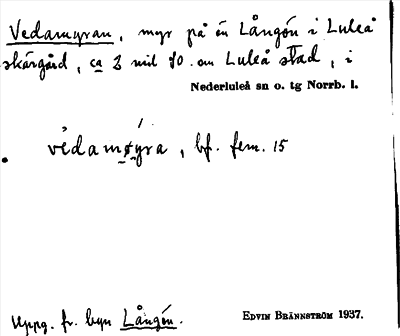 Vedamyran, myr på ön Långön i Luleå
skärgård, ca 2 mil SO. om Luleå stad, i
Nederluleå sn o. tg Norrb. l.
vèdamø̀yra, bf. fem. 15
Uppg. fr. byn Långön.
EDVIN BRÄNNSTRÖM 1937.